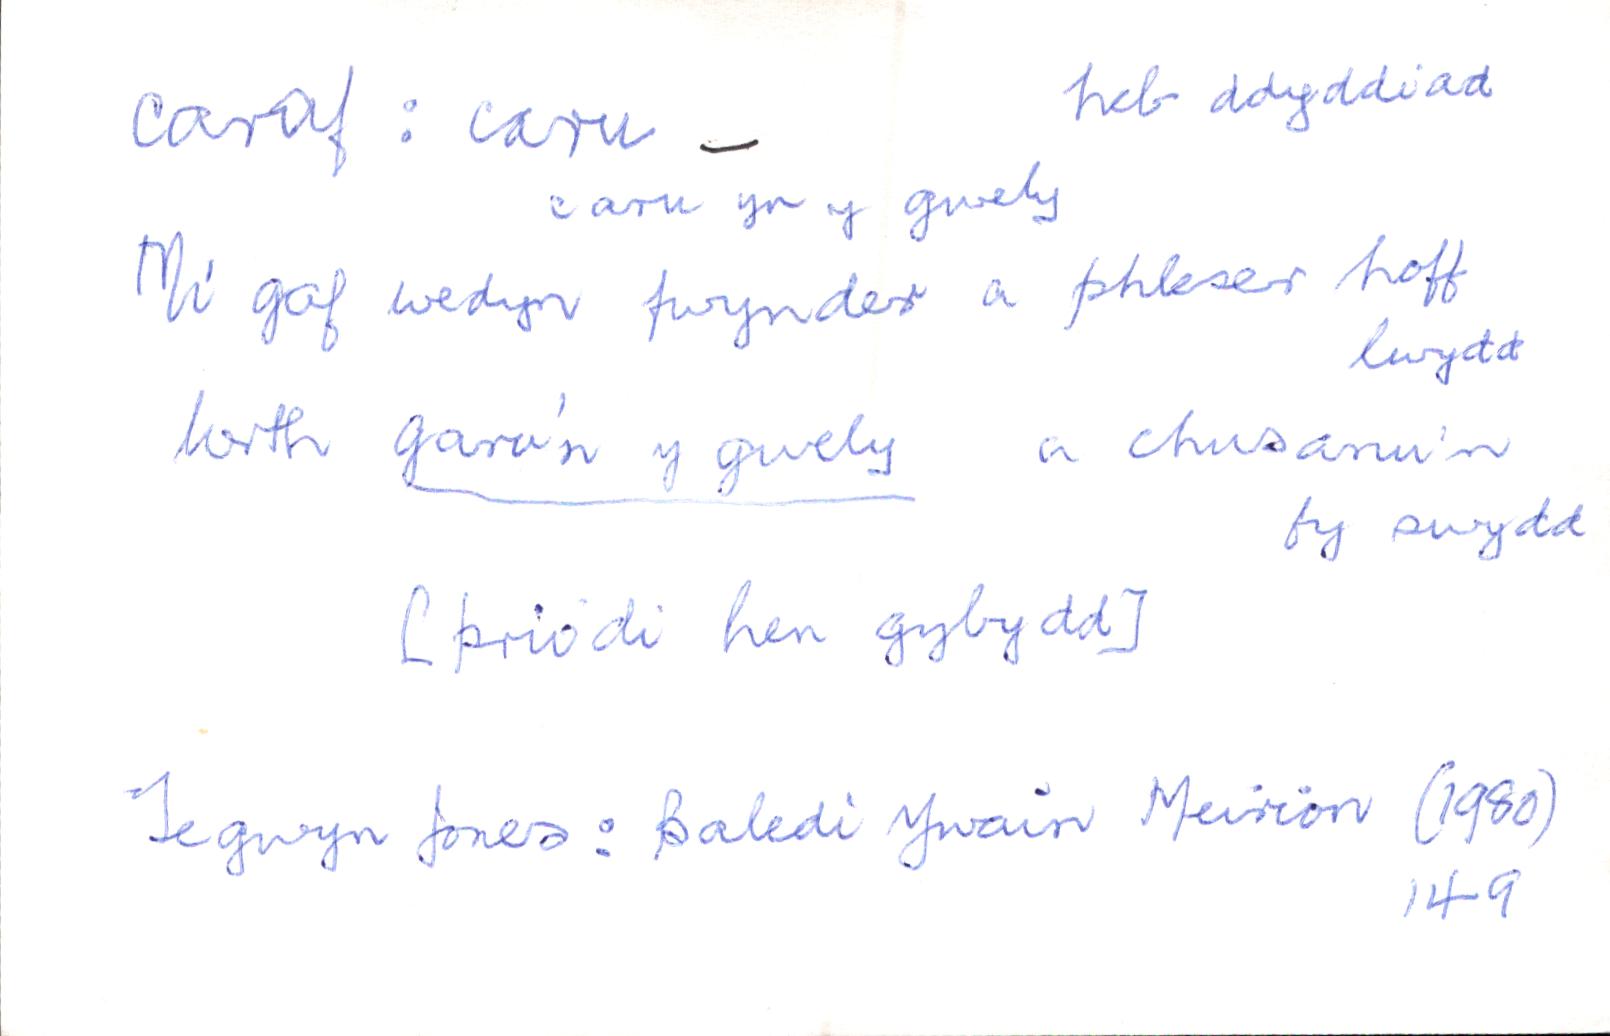 caraf : caru –
heb ddyddiad
caru yn y gwely
Mi gaf wedyn fwynder a phleser hoff
lwydd
Wrth garu'n y gwely a chusanu'n
fy swydd
[priodi hen gybydd]
Tegwyn Jones: Baledi Ywain Meirion (1980)
149